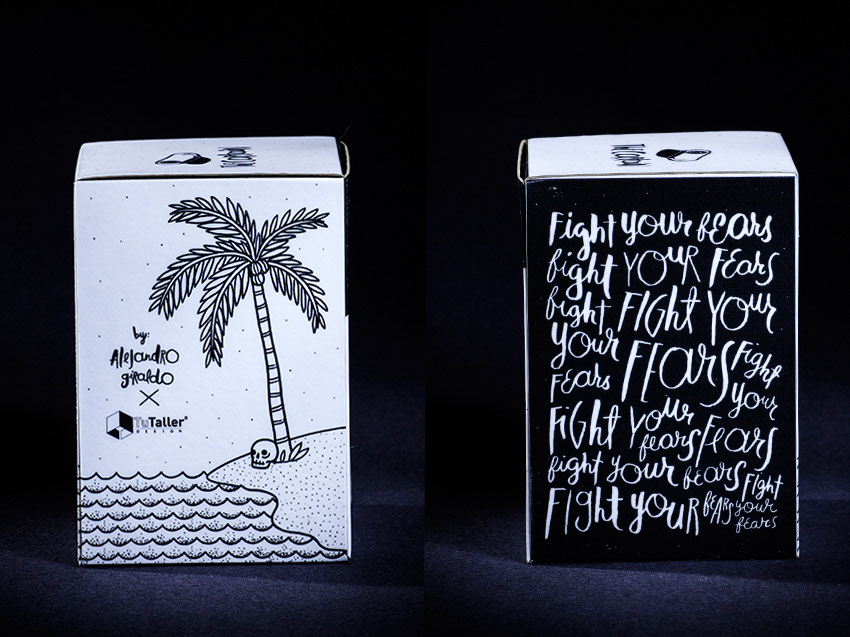 by:
AlEjANDRO
giRAlDO
X
TuTaller®
DESIGN
Fight your fEars
fight YOuR FEars
fight FIGht YOur
YOur FEars Fight
FEars your
FiGHT Your fears FEars
fight your fEars Fight
FIght youR fEARS your
fEars